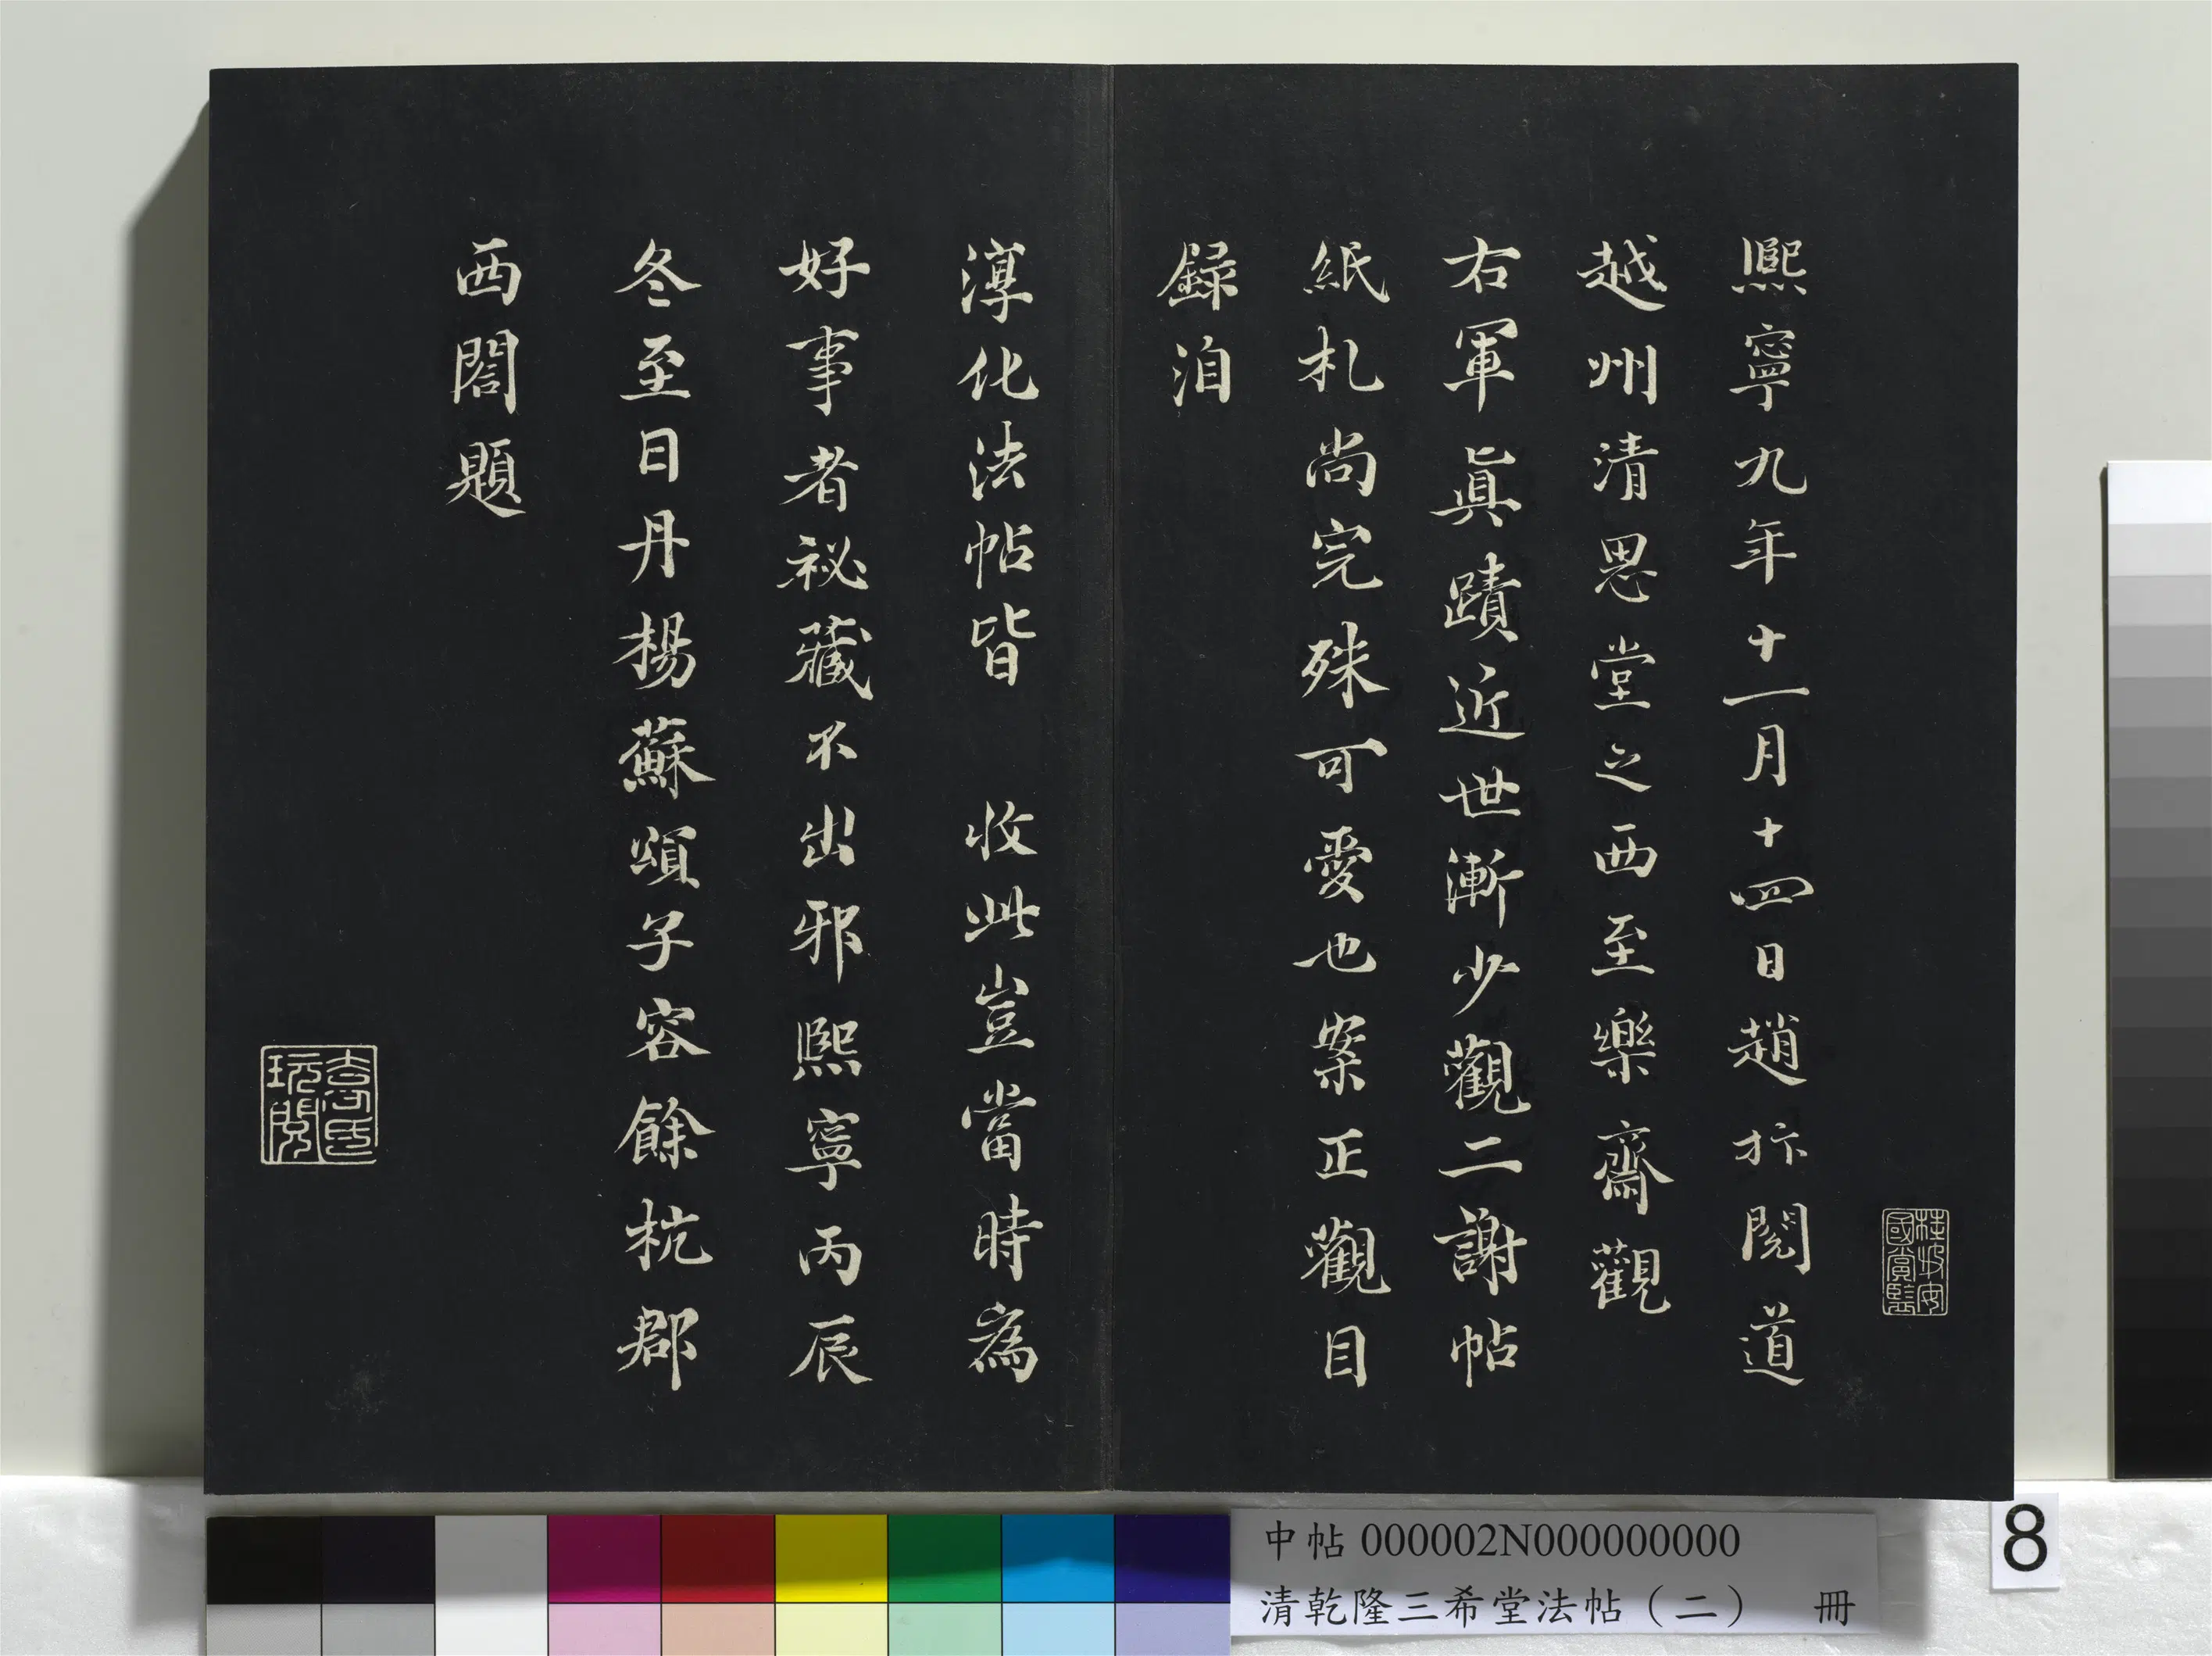 熙寧九年十一月十四日趙抃閱道
越州清思堂之西至樂齋觀
右軍真蹟近世漸少觀二謝帖
紙札尚完殊可愛也案正觀目
録洎
淳化法帖皆 收此豈當時為
好事者祕藏不出邪熙寧丙辰
冬至日丹楊蘇頌子容餘杭郡
西閤題
桂坡安國賞鑒
袁氏玩閱
中帖 000002N000000000
清乾隆三希堂法帖(二) 冊
8